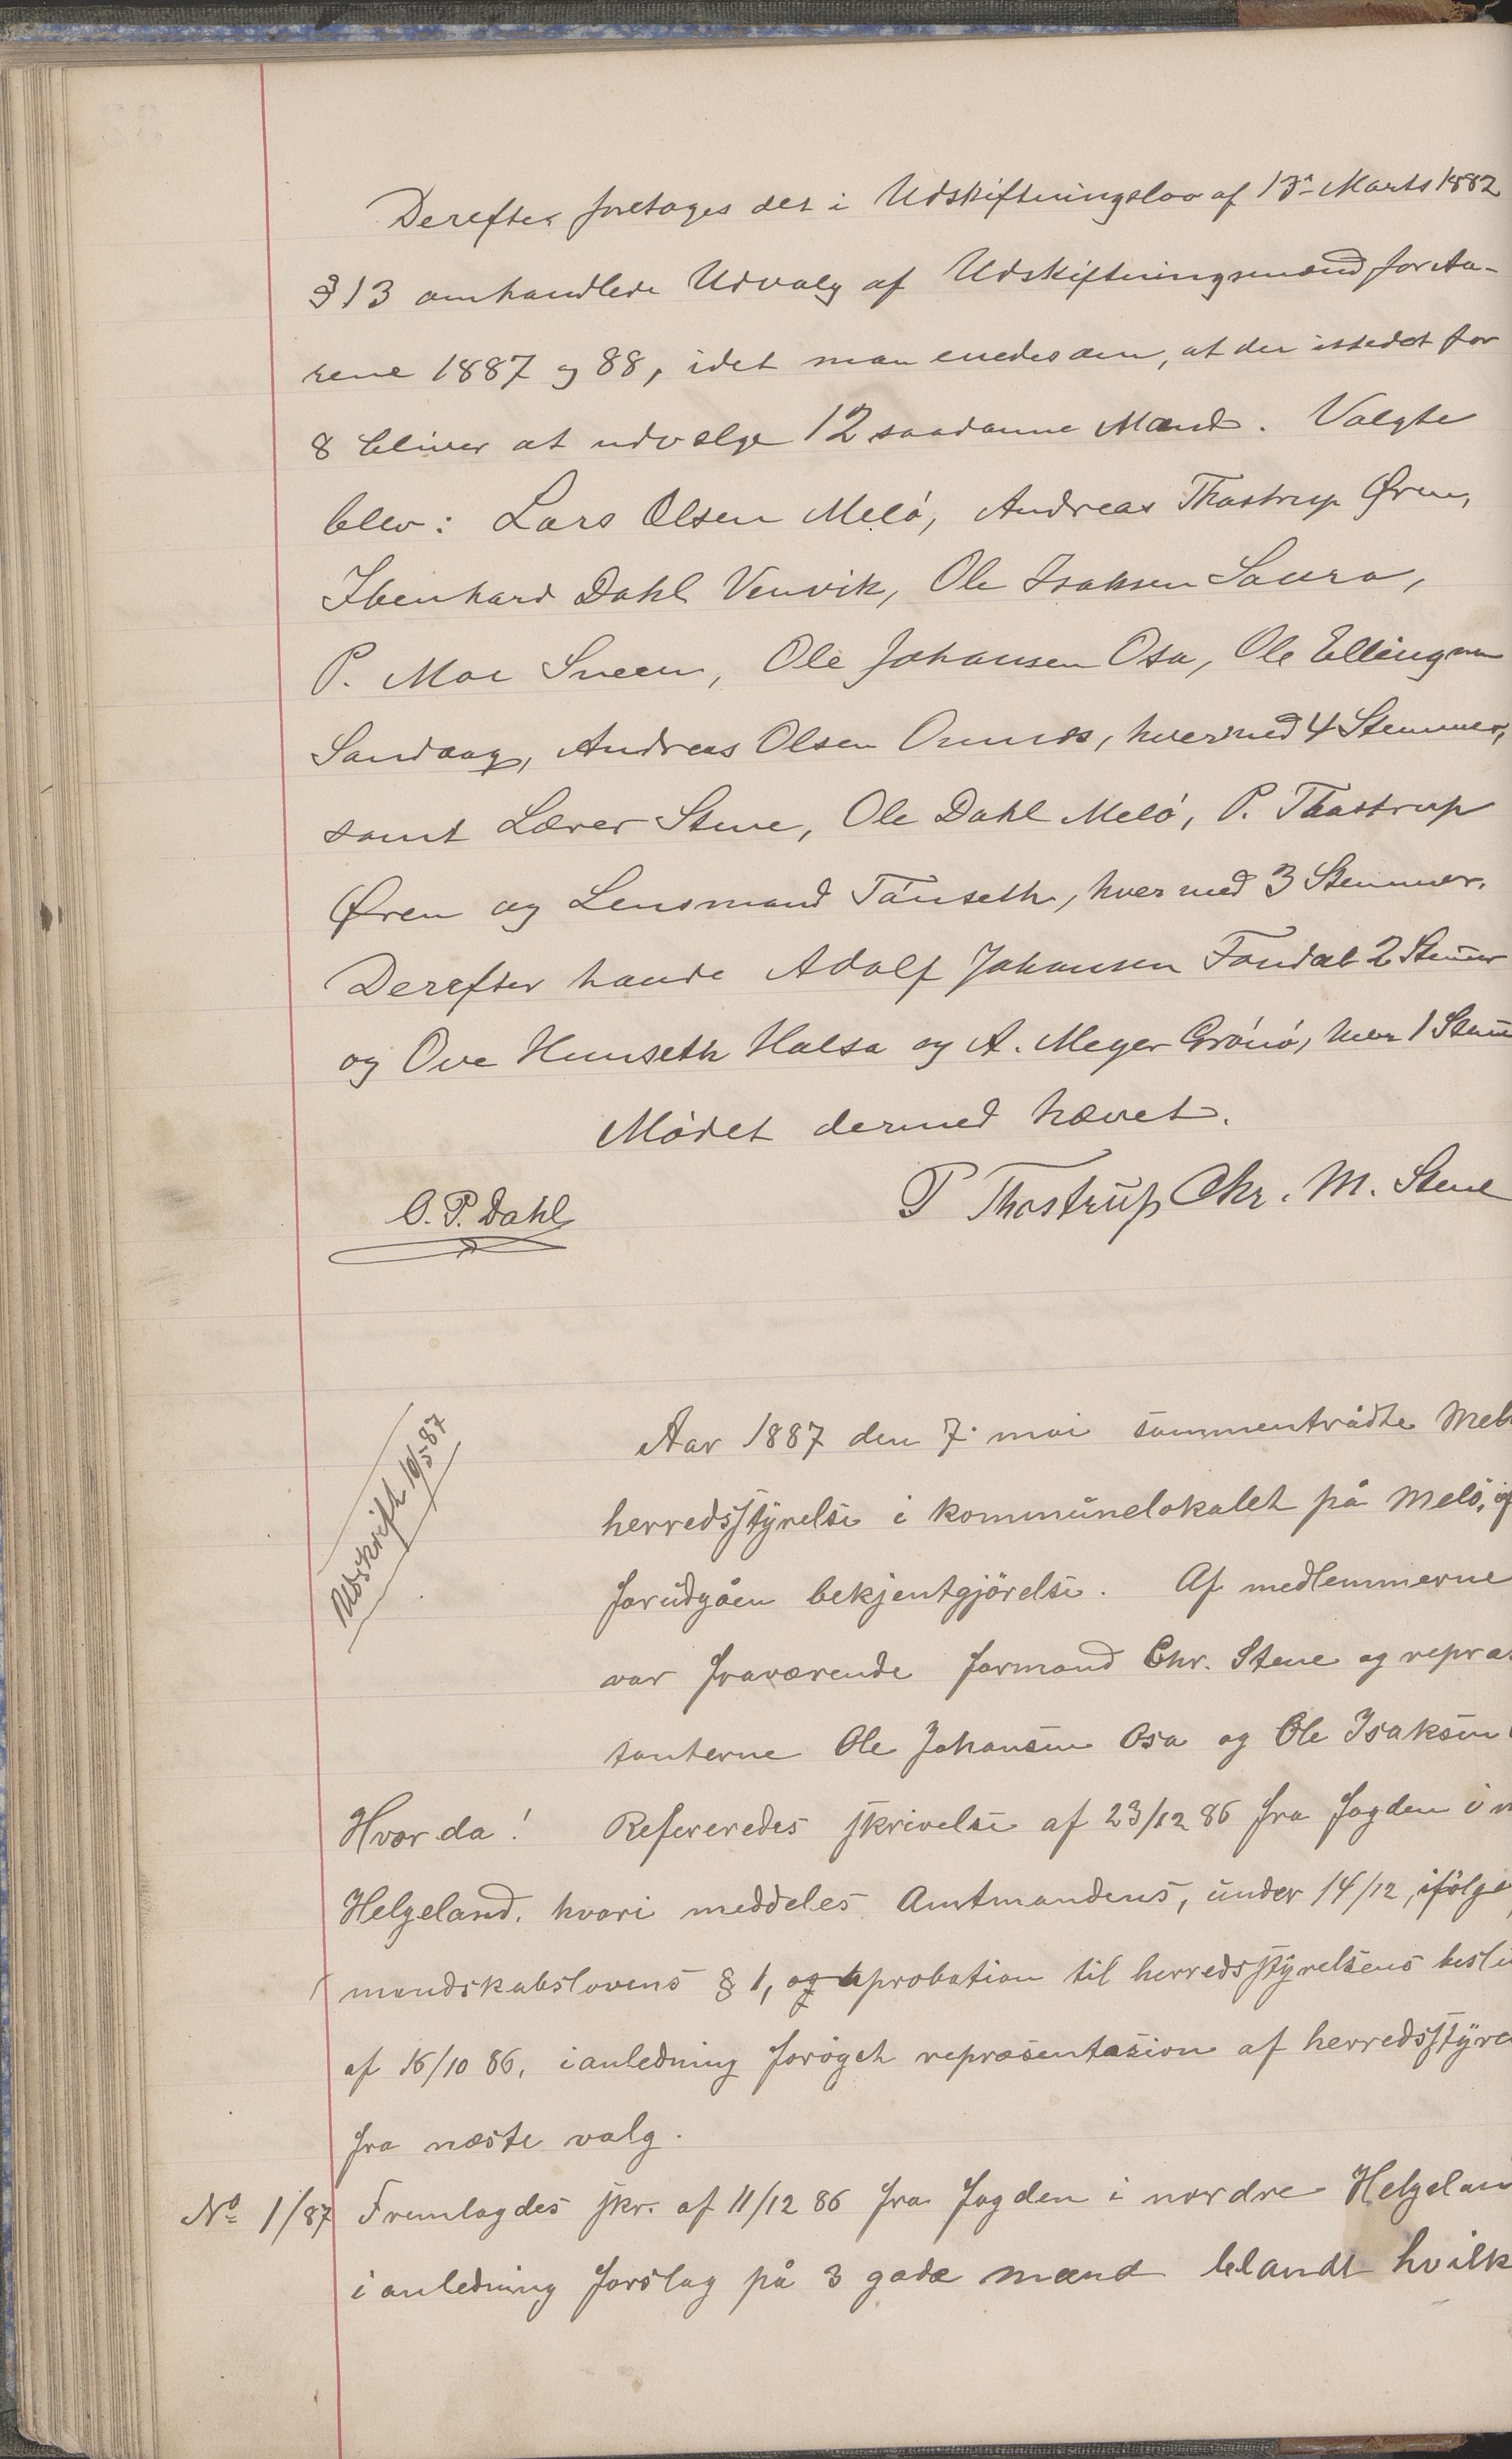 Derefter foretoges det i Udskiftningslov af 13de Marts 1882
§ 13 omhandlede Udvalg af Udskiftningsmænd for Aa-
rene 1887 og 88, idet man enedes om, at der istedet for
8 bliver at udvælge 12 saadanne Mænd. Valgte
blev: Lars Olsen Melö, Andreas Thostrup Øren,
Ibenhard Dahl Venvik, Ole Isaksen Saura,
P. Moe Sneen, Ole Johansen Osa, Ole Ellingsen
Sandaag, Andreas Olsen Ornnes, hver med 4 Stemmer,
samt Lærer Stene, Ole Dahl Melö, P. Thostrup
Øren og Lensmand Tönseth, hver med 3 Stemmer.
Derefter havde Adolf Johansen Fondal 2 Stemmer
og Ove Hunseth Halsa og A. Meyer Grönö, hver 1 Stem
Mödet dermed hævet.
O. P. Dahl
P Thostrup Chr. M. Stene
Udskrift 10/5 87
Aar 1887 den 7. mai sammentrådte Mel
herredsstyrelse i kommunelokalet på Melö, if
forudgåen bekjentgjörelse. Af medlemmerne
var fraværende formand Chr. Stene og repræ
tanterne Ole Johansen Osa og Ole Isaksen
Hvor da! Refereredes skrivelse af 23/12 86 fra fogden i n
Helgeland, hvori meddeles Amtmandens, under 14/12, ifölge
mandskabslovens § 1, aprobation til herredsstyrelsens beslu
af 16/10 86, i anledning forøget repræsentasion af herredsstyre
fra næste valg.
No 1/87 Fremlagdes skr. af 11/12 86 fra fogden i nordre Helgelan
i anledning forslag på 3 gode mænd blandt hvilk